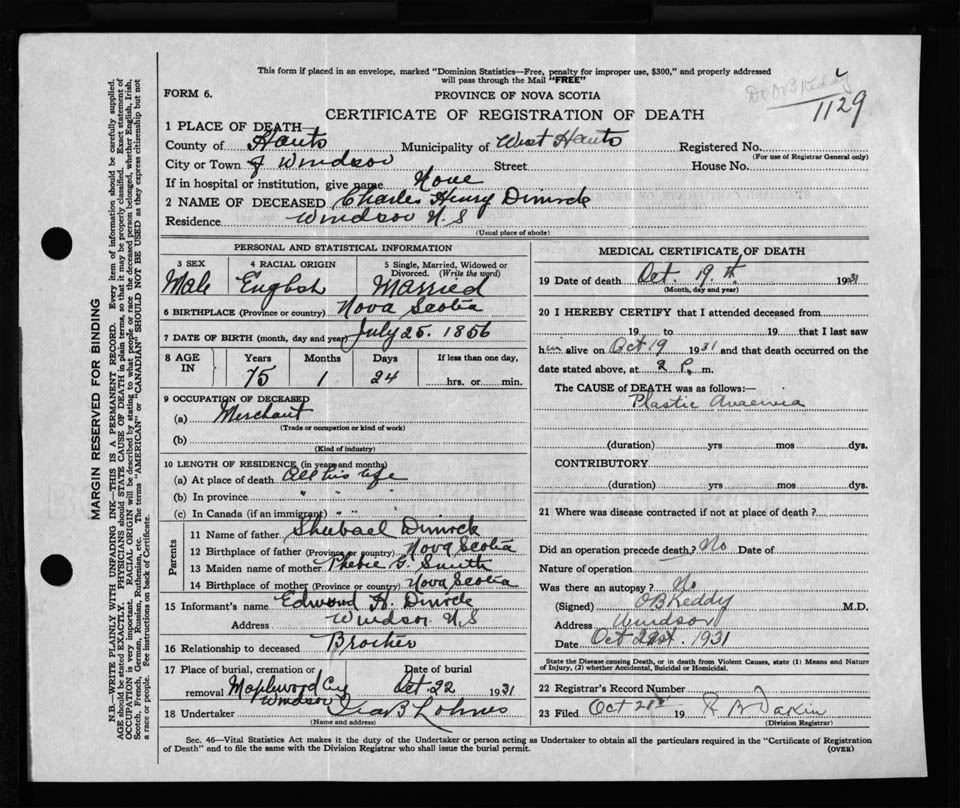 This form if placed in an envelope, marked "Dominion Statistics—Free, penalty for improper use, $300," and properly addressed
will pass through the Mail "FREE"
FORM 6.
PROVINCE OF NOVA SCOTIA
Dr O B Keddy
1129
CERTIFICATE OF REGISTRATION OF DEATH
1 PLACE OF DEATH—
County of Hants Municipality of West Hants Registered No.
(For use of Registrar General only)
City or Town of Windsor Street House No.
If in hospital or institution, give name None
2 NAME OF DECEASED Charles Henry Dimock
Residence Windsor N.S
(Usual place of abode)
PERSONAL AND STATISTICAL INFORMATION
3 SEX
Male
4 RACIAL ORIGIN
English
5 Single, Married, Widowed or
Divorced. (Write the word)
Married
6 BIRTHPLACE (Province or country) Nova Scotia
7 DATE OF BIRTH (month, day and year) July 25. 1856
8 AGE
IN
Years Months Days If less than one day,
75 1 24 hrs. or min.
9 OCCUPATION OF DECEASED
(a) Merchant
(Trade or occupation or kind of work)
(b)
(Kind of industry)
10 LENGTH OF RESIDENCE (in years and months)
(a) At place of death All his life
(b) In province " " "
(c) In Canada (if an immigrant) " " "
Parents
11 Name of father Shubael Dimock
12 Birthplace of father (Province or country) Nova Scotia
13 Maiden name of mother Phebie G. Smith
14 Birthplace of mother (Province or country) Nova Scotia
15 Informant's name Edward H. Dimock
Address Windsor N.S
16 Relationship to deceased Brother
17 Place of burial, cremation or Date of burial
removal Maplewood Cem Oct 22 1931
Windsor
18 Undertaker Ira B Lohnes
(Name and address)
MEDICAL CERTIFICATE OF DEATH
19 Date of death Oct. 19.th 1931
(Month, day and year)
20 I HEREBY CERTIFY that I attended deceased from
19 to 19 that I last saw
him alive on Oct 19 1931 and that death occurred on the
date stated above, at 2 P. m.
The CAUSE of DEATH was as follows:—
Plastic Anaemia
(duration) yrs mos dys.
CONTRIBUTORY
(duration) yrs mos dys.
21 Where was disease contracted if not at place of death?
Did an operation precede death? No Date of
Nature of operation
Was there an autopsy? No
(Signed) O B Keddy M.D.
Address Windsor
Date Oct 21st. 1931
State the Disease causing Death, or in death from Violent Causes, state (1) Means and Nature
of Injury, (2) whether Accidental, Suicidal or Homicidal.
22 Registrar's Record Number
23 Filed Oct 21st 19 R B Dakin
(Division Registrar)
Sec. 46—Vital Statistics Act makes it the duty of the Undertaker or person acting as Undertaker to obtain all the particulars required in the "Certificate of Registration
of Death" and to file the same with the Division Registrar who shall issue the burial permit.
(OVER)
MARGIN RESERVED FOR BINDING
N.B.—WRITE PLAINLY WITH UNFADING INK—THIS IS A PERMANENT RECORD. Every item of information should be carefully supplied.
AGE should be stated EXACTLY. PHYSICIANS should STATE CAUSE OF DEATH in plain terms, so that it may be properly classified. Exact statement of
OCCUPATION is very important. RACIAL ORIGIN will be described by stating to what people or race the deceased person belonged, whether English, Irish,
Scotch, French, German, Russian, Ruthenian, etc. The terms "AMERICAN" or "CANADIAN" SHOULD NOT BE USED as they express citizenship but not
a race or people. See instructions on back of Certificate.